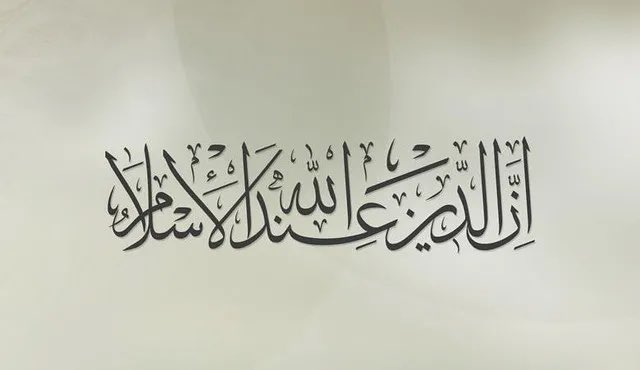 إنَّ الدِّين عند الله الإسلام